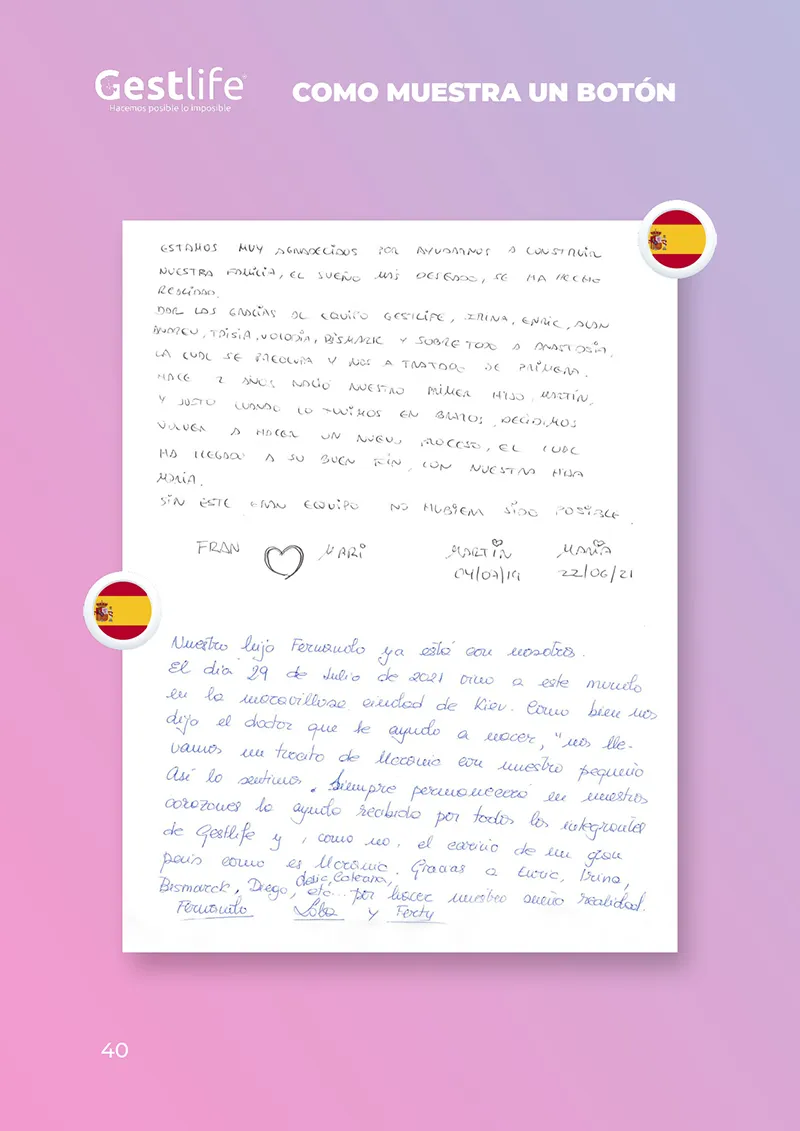 Gestlife
Hacemos posible lo imposible
COMO MUESTRA UN BOTÓN
ESTAMOS MUY AGRADECIDOS POR AYUDARNOS A CONSTRUIR
NUESTRA FAMILIA, EL SUEÑO MAS DESEADO, SE HA HECHO
REALIDAD.
DAR LAS GRACIAS AL EQUIPO GESTLIFE, IRINA, ENRIC, ALAN
ANDREU, TAISIA, VOLODIA, BISMARK Y SOBRE TODO A ANASTASIA.
LA CUAL SE PREOCUPA Y NOS A TRATADO DE PRIMERA.
HACE 2 AÑOS NACIÓ NUESTRO PRIMER HIJO, MARTÍN,
Y JUSTO CUANDO LO TUVIMOS EN BRAZOS, DECIDIMOS
VOLVER A HACER UN NUEVO PROCESO, EL CUAL
HA LLEGADO A SU BUEN FIN, CON NUESTRA HIJA
MARIA.
SIN ESTE GRAN EQUIPO NO HUBIERA SIDO POSIBLE.
FRAN MARI MARTIN MARÍA
04/07/19 22/06/21
Nuestro hijo Fernando ya está con nosotros.
El día 29 de Julio de 2021 vino a este mundo
en la maravillosa ciudad de Kiev. Como bien nos
dijo el doctor que le ayudo a nacer, "nos lle-
vamos un trocito de Ucrania con nuestro pequeño
Así lo sentimos. Siempre permanecerá en nuestros
corazones la ayuda recibida por todos los integrantes
de Gestlife y, como no, el cariño de un gran
país como es Ucrania. Gracias a Irina,
Bismarck, Diego, etc... por hacer nuestro sueño realidad.
Fernando y Ferty
40